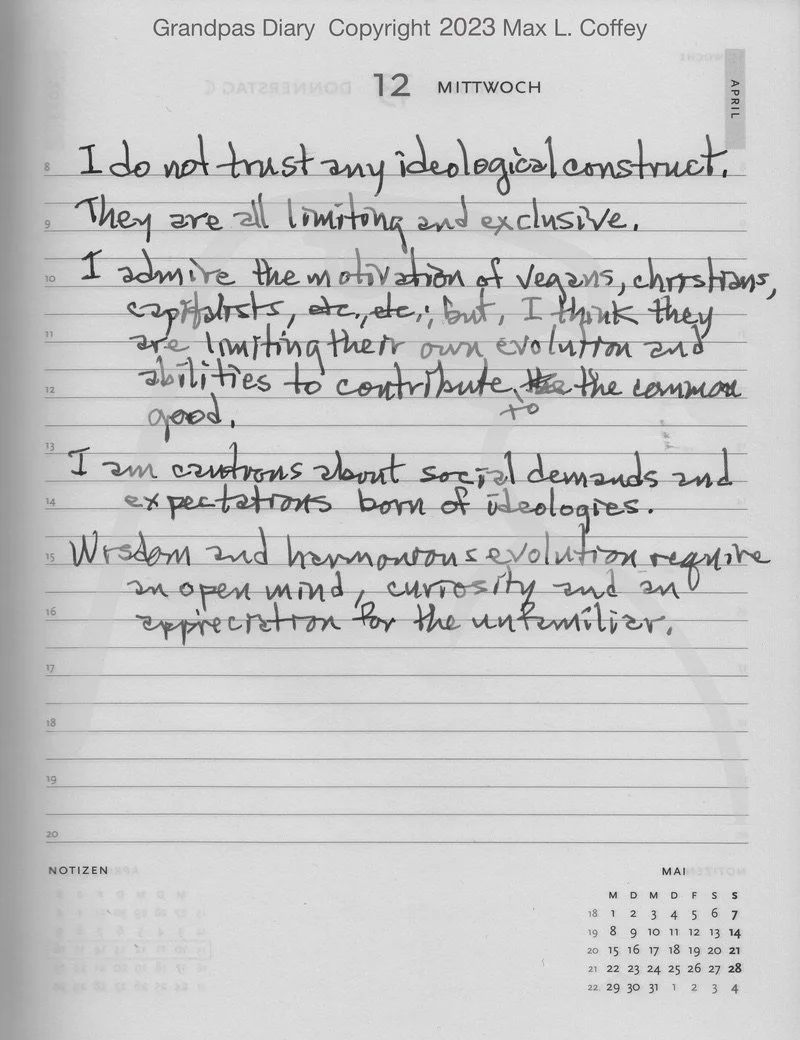 Grandpas Diary Copyright 2023 Max L. Coffey
12 MITTWOCH
APRIL
8 I do not trust any ideological construct.
9 They are all limiting and exclusive.
10 I admire the motivation of vegans, christians,
capitalists, etc., etc.; but, I think they
11 are limiting their own evolution and
12 abilities to contribute to the common
good.
13 I am cautious about social demands and
14 expectations born of ideologies.
15 Wisdom and harmonious evolution require
an open mind, curiosity and an
16 appreciation for the unfamiliar.
17
18
19
20
NOTIZEN
MAI
M D M D F S S
18 1 2 3 4 5 6 7
19 8 9 10 11 12 13 14
20 15 16 17 18 19 20 21
21 22 23 24 25 26 27 28
22 29 30 31 1 2 3 4